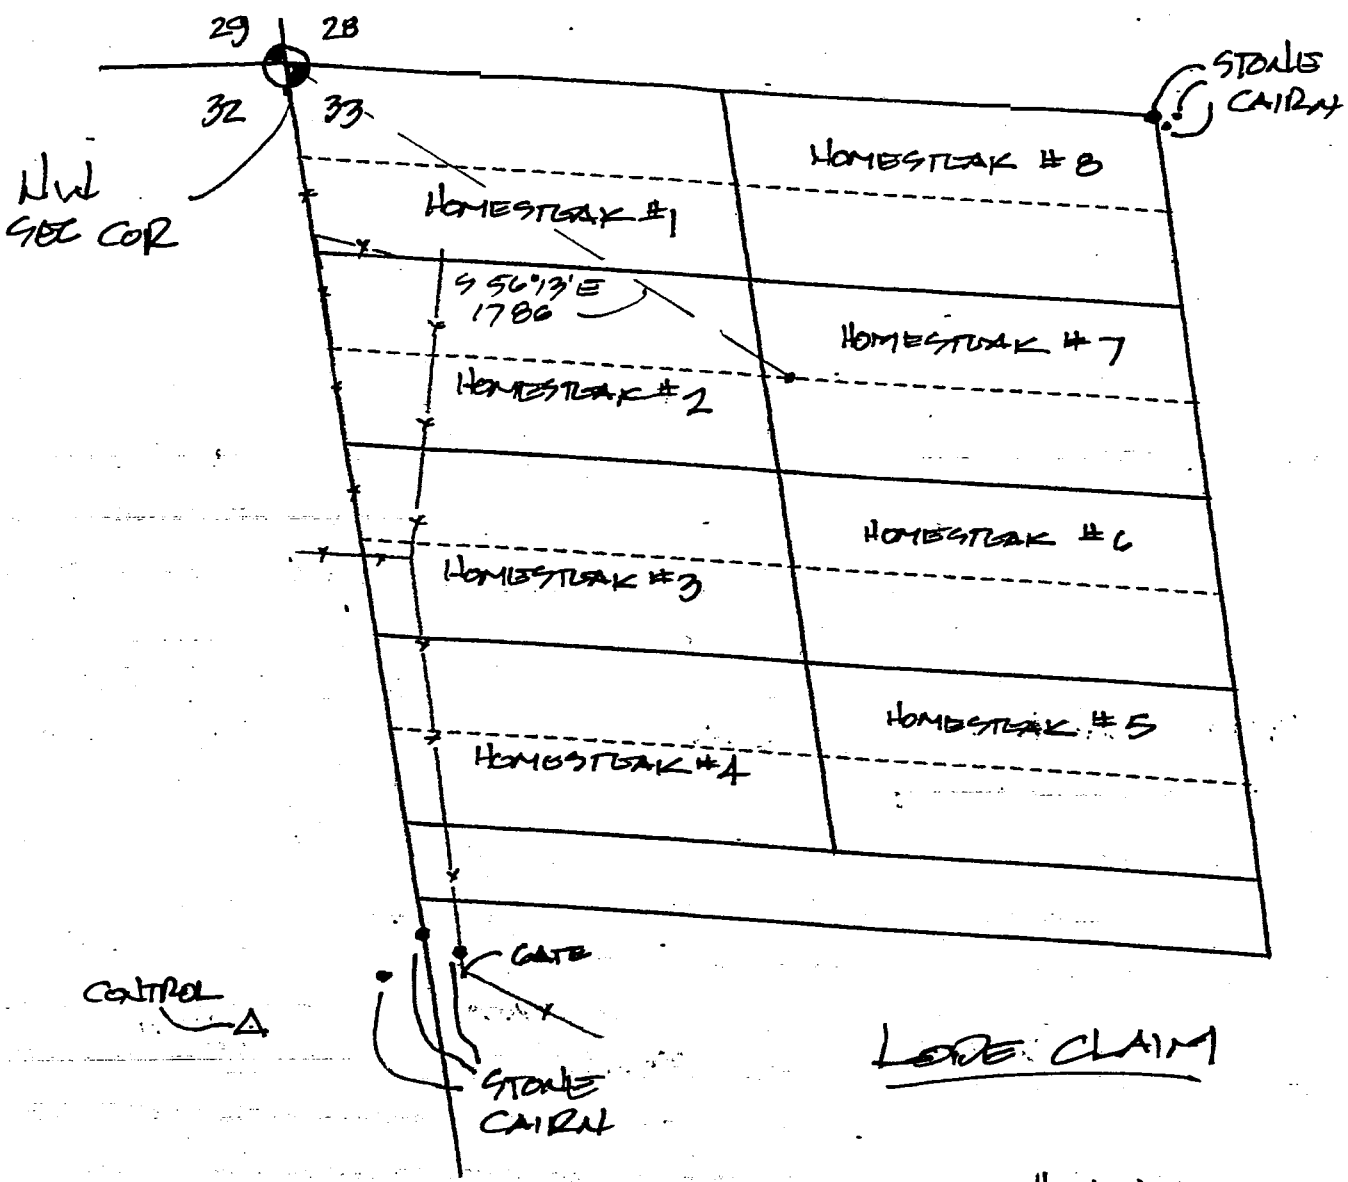 29 28
32 33
NW
SEC COR
STONE
CAIRN
HOMESTEAK #8
HOMESTEAK #1
S 56°13'E
1786
HOMESTEAK #7
HOMESTEAK #2
HOMESTEAK #6
HOMESTEAK #3
HOMESTEAK #5
HOMESTEAK #4
GATE
CONTROL
STONE
CAIRN
LODE CLAIM